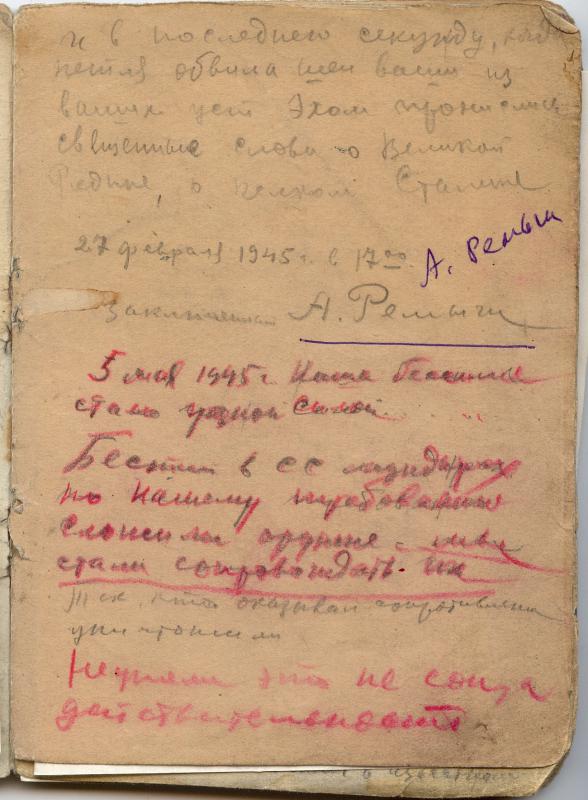 и в последнею секунду, когда
петля обвила шеи ваши из
ваших уст Эхом пронислись
свщенные слова о Великой
Родине, о великом Сталине
27 февраля 1945 г. в 17 00
А. Ремыги
заключенный А. Ремыги
5 мая 1945 г. Наша бессилие
стало грозной силой.
Бестии в СС мундирах
по нашему требованию
сложили оружие - мы
стали сопровождать их
Тех, кто оказывал сопротивление
уничтожили
Неужели это не сон, а
действительность